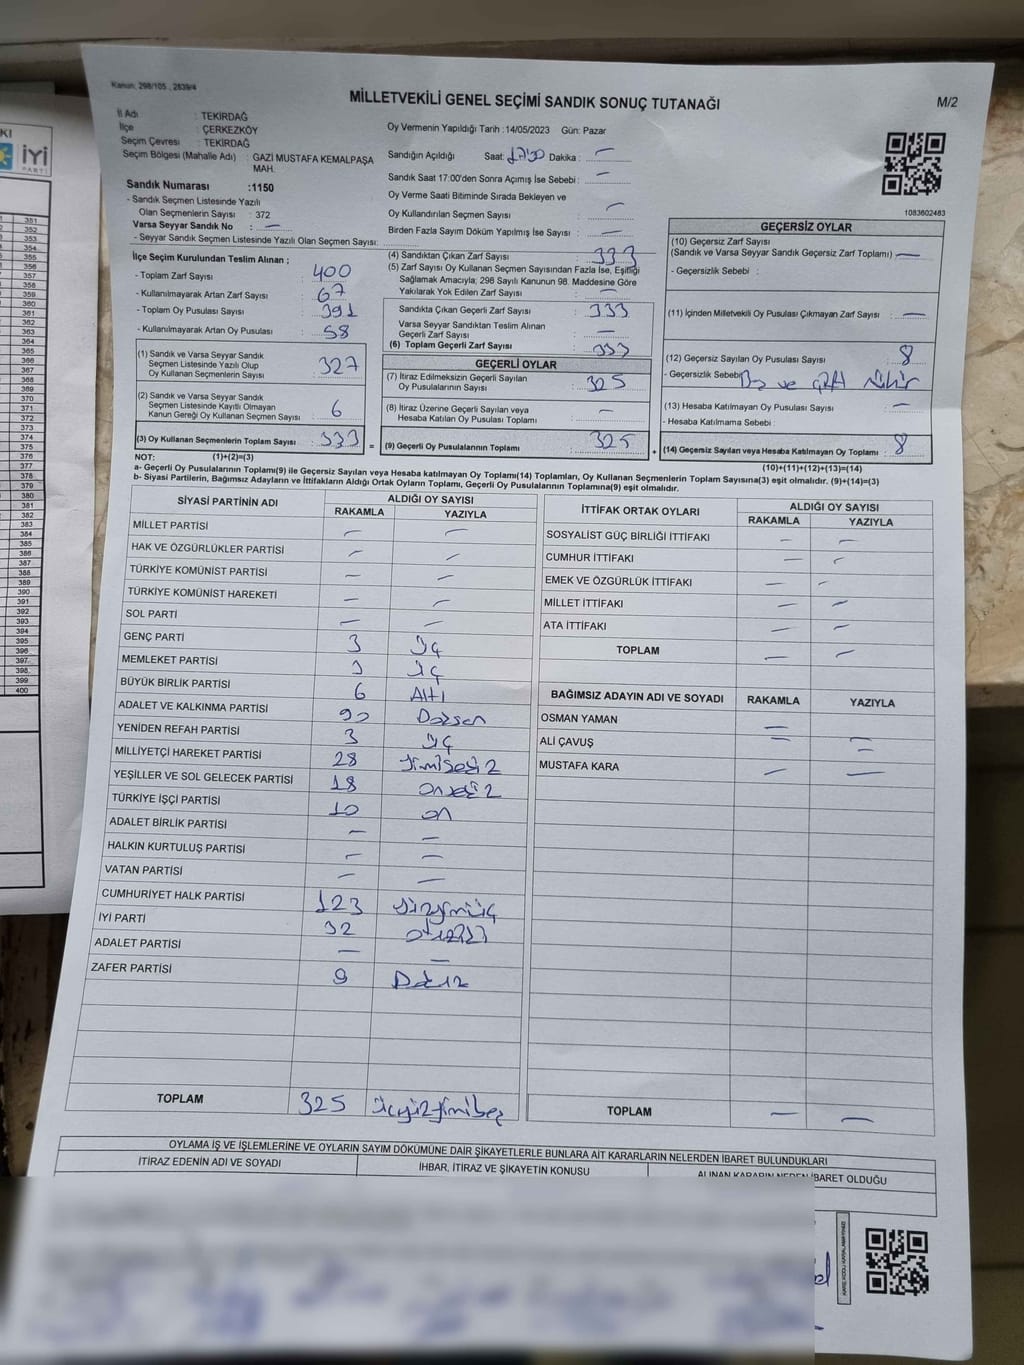 Kanun: 298/105., 2839/4
MİLLETVEKİLİ GENEL SEÇİMİ SANDIK SONUÇ TUTANAĞI
M/2
İl Adı : TEKİRDAĞ
İlçe : ÇERKEZKÖY
Seçim Çevresi : TEKİRDAĞ
Seçim Bölgesi (Mahalle Adı) : GAZİ MUSTAFA KEMALPAŞA MAH.
Sandık Numarası :1150
- Sandık Seçmen Listesinde Yazılı
Olan Seçmenlerin Sayısı : 372
Varsa Seyyar Sandık No : —
- Seyyar Sandık Seçmen Listesinde Yazılı Olan Seçmen Sayısı:
Oy Vermenin Yapıldığı Tarih :14/05/2023 Gün: Pazar
Sandığın Açıldığı Saat: 17:30 Dakika : —
Sandık Saat 17:00'den Sonra Açımış İse Sebebi : —
Oy Verme Saati Bitiminde Sırada Bekleyen ve
Oy Kullandırılan Seçmen Sayısı : —
Birden Fazla Sayım Döküm Yapılmış İse Sayısı : —
1083602483
İlçe Seçim Kurulundan Teslim Alınan ;
- Toplam Zarf Sayısı : 400
- Kullanılmayarak Artan Zarf Sayısı : 67
- Toplam Oy Pusulası Sayısı : 391
- Kullanılmayarak Artan Oy Pusulası : 58
(1) Sandık ve Varsa Seyyar Sandık
Seçmen Listesinde Yazılı Olup
Oy Kullanan Seçmenlerin Sayısı : 327
(2) Sandık ve Varsa Seyyar Sandık
Seçmen Listesinde Kayıtlı Olmayan
Kanun Gereği Oy Kullanan Seçmen Sayısı : 6
(3) Oy Kullanan Seçmenlerin Toplam Sayısı : 333 =
(4) Sandıktan Çıkan Zarf Sayısı : 333
(5) Zarf Sayısı Oy Kullanan Seçmen Sayısından Fazla İse, Eşitliği
Sağlamak Amacıyla; 298 Sayılı Kanunun 98. Maddesine Göre
Yakılarak Yok Edilen Zarf Sayısı : —
Sandıkta Çıkan Geçerli Zarf Sayısı : 333
Varsa Seyyar Sandıktan Teslim Alınan
Geçerli Zarf Sayısı : —
(6) Toplam Geçerli Zarf Sayısı : 333
GEÇERLİ OYLAR
(7) İtiraz Edilmeksizin Geçerli Sayılan
Oy Pusulalarının Sayısı : 325
(8) İtiraz Üzerine Geçerli Sayılan veya
Hesaba Katılan Oy Pusulası Toplamı : —
(9) Geçerli Oy Pusulalarının Toplamı : 325 +
GEÇERSİZ OYLAR
(10) Geçersiz Zarf Sayısı
(Sandık ve Varsa Seyyar Sandık Geçersiz Zarf Toplamı) : —
- Geçersizlik Sebebi :
(11) İçinden Milletvekili Oy Pusulası Çıkmayan Zarf Sayısı : —
(12) Geçersiz Sayılan Oy Pusulası Sayısı : 8
- Geçersizlik Sebebi: Boş ve çift mühür
(13) Hesaba Katılmayan Oy Pusulası Sayısı : —
- Hesaba Katılmama Sebebi :
(14) Geçersiz Sayılan veya Hesaba Katılmayan Oy Toplamı : 8
NOT: (1)+(2)=(3)
(10)+(11)+(12)+(13)=(14)
a- Geçerli Oy Pusulalarının Toplamı(9) ile Geçersiz Sayılan veya Hesaba katılmayan Oy Toplamı(14) Toplamları, Oy Kullanan Seçmenlerin Toplam Sayısına(3) eşit olmalıdır. (9)+(14)=(3)
b- Siyasi Partilerin, Bağımsız Adayların ve İttifakların Aldığı Ortak Oyların Toplamı, Geçerli Oy Pusulalarının Toplamına(9) eşit olmalıdır.
SİYASİ PARTİNİN ADI ALDIĞI OY SAYISI
RAKAMLA YAZIYLA
MİLLET PARTİSİ — —
HAK VE ÖZGÜRLÜKLER PARTİSİ — —
TÜRKİYE KOMÜNİST PARTİSİ — —
TÜRKİYE KOMÜNİST HAREKETİ — —
SOL PARTİ — —
GENÇ PARTİ 3 Üç
MEMLEKET PARTİSİ 3 Üç
BÜYÜK BİRLİK PARTİSİ 6 Altı
ADALET VE KALKINMA PARTİSİ 90 Doksan
YENİDEN REFAH PARTİSİ 3 Üç
MİLLİYETÇİ HAREKET PARTİSİ 28 Yirmisekiz
YEŞİLLER VE SOL GELECEK PARTİSİ 18 Onsekiz
TÜRKİYE İŞÇİ PARTİSİ 10 on
ADALET BİRLİK PARTİSİ — —
HALKIN KURTULUŞ PARTİSİ — —
VATAN PARTİSİ — —
CUMHURİYET HALK PARTİSİ 123 yüzyirmiüç
İYİ PARTİ 32 otuziki
ADALET PARTİSİ — —
ZAFER PARTİSİ 9 Dokuz
TOPLAM 325 üçyüzyirmibeş
İTTİFAK ORTAK OYLARI ALDIĞI OY SAYISI
RAKAMLA YAZIYLA
SOSYALİST GÜÇ BİRLİĞİ İTTİFAKI — —
CUMHUR İTTİFAKI — —
EMEK VE ÖZGÜRLÜK İTTİFAKI — —
MİLLET İTTİFAKI — —
ATA İTTİFAKI — —
TOPLAM — —
BAĞIMSIZ ADAYIN ADI VE SOYADI RAKAMLA YAZIYLA
OSMAN YAMAN —
ALİ ÇAVUŞ — —
MUSTAFA KARA — —
TOPLAM — —
OYLAMA İŞ VE İŞLEMLERİNE VE OYLARIN SAYIM DÖKÜMÜNE DAİR ŞİKAYETLERLE BUNLARA AİT KARARLARIN NELERDEN İBARET BULUNDUKLARI
İTİRAZ EDENİN ADI VE SOYADI
İHBAR, İTİRAZ VE ŞİKAYETİN KONUSU
ALINAN KARARIN NEDEN İBARET OLDUĞU
KAREKODU KARALAMAYINIZ!
İYİ
PARTİ
351
352
353
354
355
356
357
358
359
360
361
362
363
364
365
366
367
368
369
370
371
372
373
374
375
376
377
378
379
380
381
382
383
384
385
386
387
388
389
390
391
392
393
394
395
396
397
398
399
400